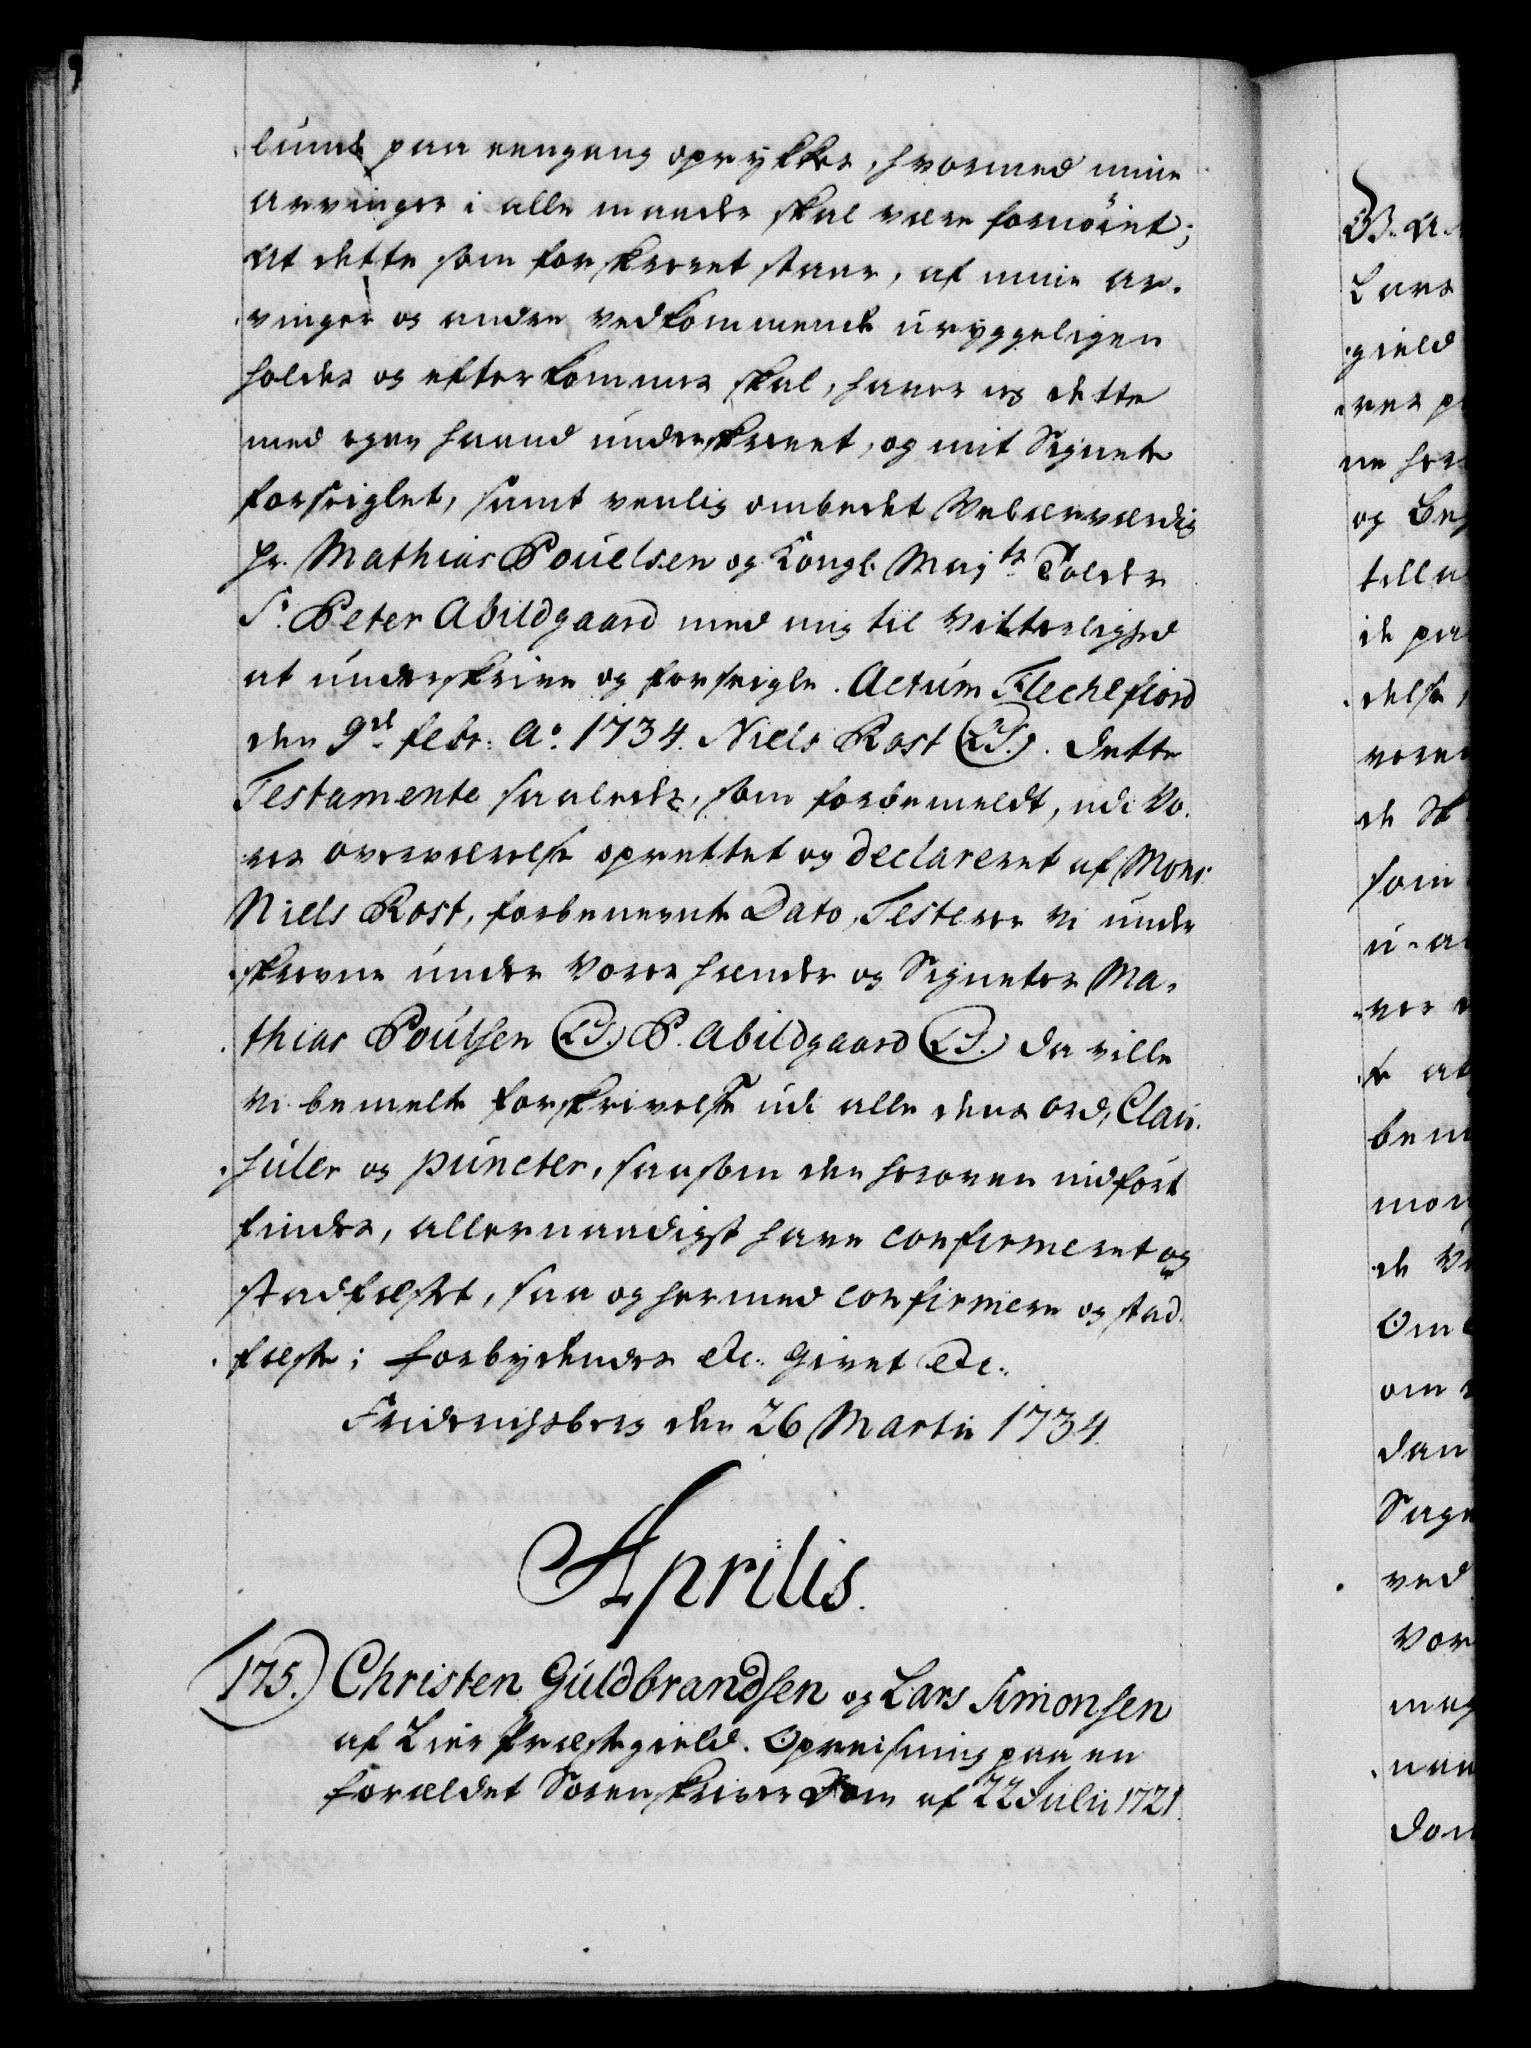 lunde paa eengang oprykkes, hvormed mine
arvinger i alle maader skal være fornöiet;
at dette som forskrevet staar, af mine ar-
vinger og andre vedkommende uryggeligen
holdes og efterkommes skal, haver ieg dette
med egen haand underskrevet, og mit Signete
forseiglet, samt venlig ombedet Velærværdig
Hr. Mathias Pouelsen og Kongl. Maj:ts Tolder
Sr. Peter Abildgaard med mig til Vitterlighed
at underskrive og forseigle. Actum Flechefiord
den 9de febr: Ao. 1734. Niels Rost (LS.). Dette
Testamente saaledes, som forbemeldt, udi Vo-
res overværelse oprettet og declareret af Mons:
Niels Rost, forbenevnte Dato, Testerer Vi under
skrevne under Vores hænder og Signeter Ma-
thias Poulsen (LS.) P. Abildgaard (LS.) Da ville
Vi bemelte forskrivelse udi alle dens Ord, Clau-
suler og puncter, saasom den herover indfört
findes, allernaadigst have confirmeret og
stadfæstet, saa og hermed confirmere og stad-
fæste; forbydendes etc. Givet etc.
Friderichsberg den 26 Martii 1734.
Aprilis.
175.) Christen Guldbrandsen og Lars Simonsen
af Lier Præstegield. Opreisning paa en
forældet Sorenskriver Dom af 22 Julii 1721.
B. A.
Lars
gield
ver p
ne her
og Be
tilla
de paa
delse
vore
de
som
u-a
ver
at
bem
mor
de V
Om
om
dan
Sage
ved
Vor
mag
naa
dom